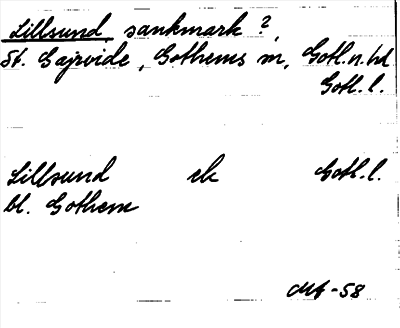 Lillsund, sankmark?,
St. Gajrvide, Gothems sn, Gotl. n. hd
Gotl. l.
Lillsund ek Gotl. l.
bl. Gothem
-58